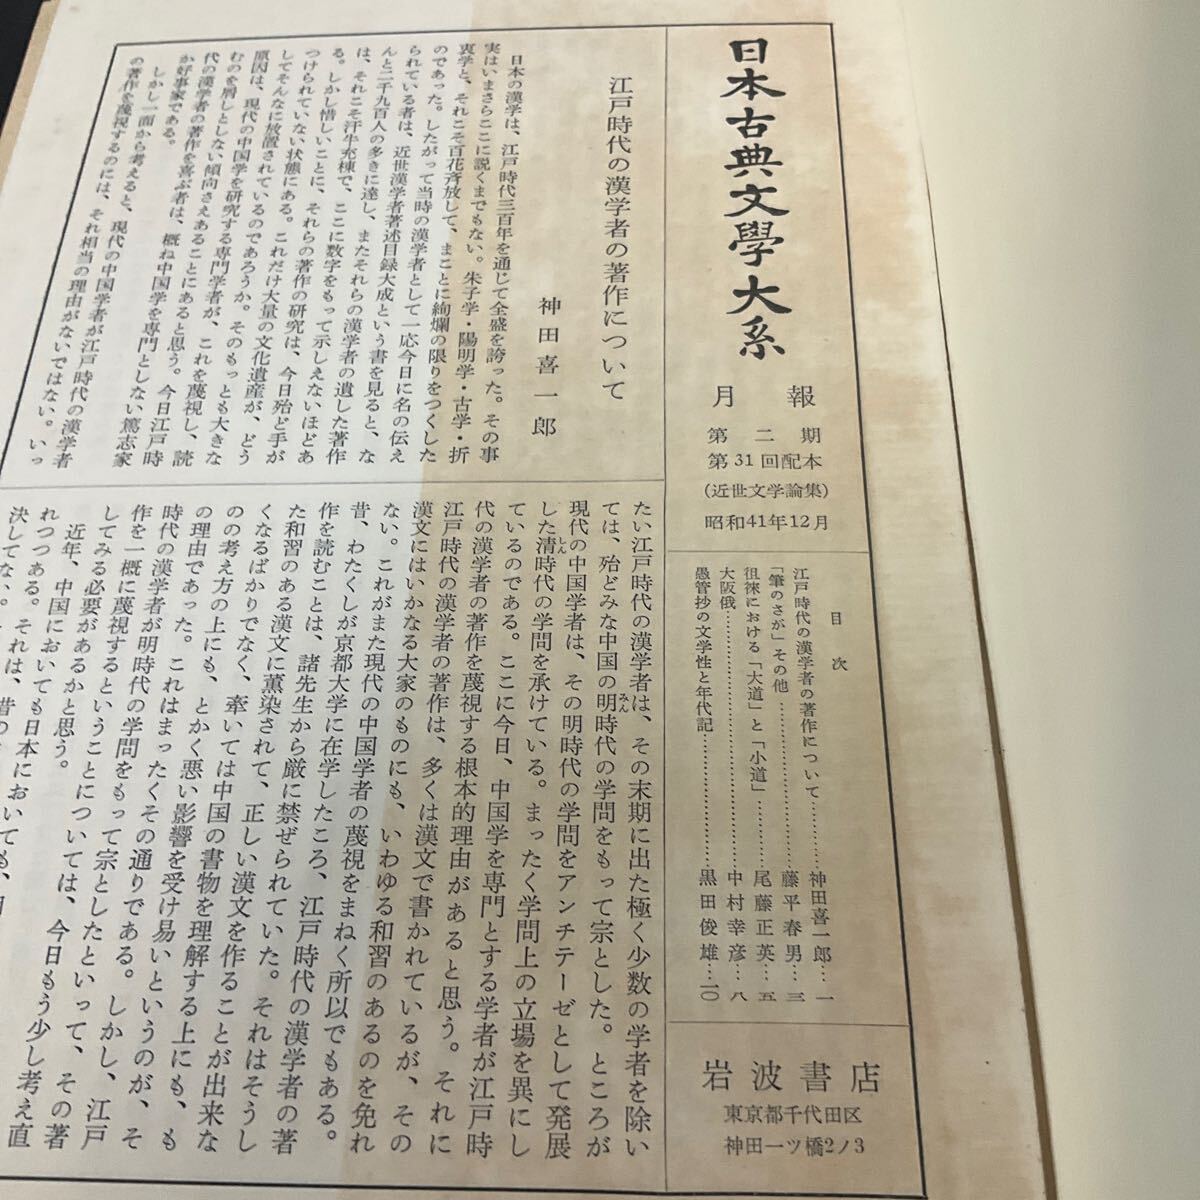 日本古典文學大系
月報
第二期
第31回配本
(近世文学論集)
昭和41年12月
目次
江戸時代の漢学者の著作について…………神田喜一郎…一
「筆のさが」その他…………藤平春男…三
徂徠における「大道」と「小道」…………尾藤正英…五
大阪俄…………中村幸彦…八
愚管抄の文学性と年代記…………黒田俊雄…一〇
岩波書店
東京都千代田区
神田一ツ橋2ノ3
江戸時代の漢学者の著作について
神田喜一郎
日本の漢学は、江戸時代三百年を通じて全盛を誇った。その事
実はいまさらここに説くまでもない。朱子学・陽明学・古学・折
衷学と、それこそ百花斉放して、まことに絢爛の限りをつくした
のであった。したがって当時の漢学者として一応今日に名の伝え
られている者は、近世漢学者著述目録大成という書を見ると、な
んと二千九百人の多きに達し、またそれらの漢学者の遺した著作
は、それこそ汗牛充棟で、ここに数字をもって示しえないほどあ
る。しかし惜しいことに、それらの著作の研究は、今日殆ど手が
つけられていない状態にある。これだけ大量の文化遺産が、どう
してそんなに放置されているのであろうか。そのもっとも大きな
原因は、現代の中国学を研究する専門学者が、これを蔑視し、読
むのを屑しとしない傾向さえあることにあると思う。今日江戸時
代の漢学者の著作を喜ぶ者は、概ね中国学を専門としない篤志家
か好事家である。
しかし一面から考えると、現代の中国学者が江戸時代の漢学者
の著作を蔑視するのには、それ相当の理由がないではない。いっ
たい江戸時代の漢学者は、その末期に出た極く少数の学者を除い
ては、殆どみな中国の明時代の学問をもって宗とした。ところが
現代の中国学者は、その明時代の学問をアンチテーゼとして発展
した清時代の学問を承けている。まったく学問上の立場を異にし
ているのである。ここに今日、中国学を専門とする学者が江戸時
代の漢学者の著作を蔑視する根本的理由があると思う。それに
江戸時代の漢学者の著作は、多くは漢文で書かれているが、その
漢文にはいかなる大家のものにも、いわゆる和習のあるのを免れ
ない。これがまた現代の中国学者の蔑視をまねく所以でもある。
昔、わたくしが京都大学に在学したころ、江戸時代の漢学者の著
作を読むことは、諸先生から厳に禁ぜられていた。それはそうし
た和習のある漢文に薫染されて、正しい漢文を作ることが出来な
くなるばかりでなく、牽いては中国の書物を理解する上にも、も
のの考え方の上にも、とかく悪い影響を受け易いというのが、そ
の理由であった。これはまったくその通りである。しかし、江戸
時代の漢学者が明時代の学問をもって宗としたといって、その著
作を一概に蔑視するということについては、今日もう少し考え直
してみる必要があるかと思う。
近年、中国においても日本においても、
れつつある。それは、昔の
決してな